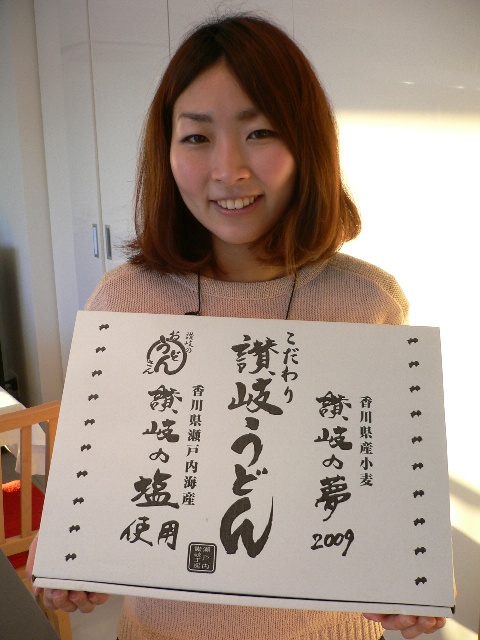 香川県産小麦
讃岐の夢
2009
こだわり
讃岐うどん
讃岐の
おうどんさん
香川県瀬戸内海産
讃岐の塩
使用